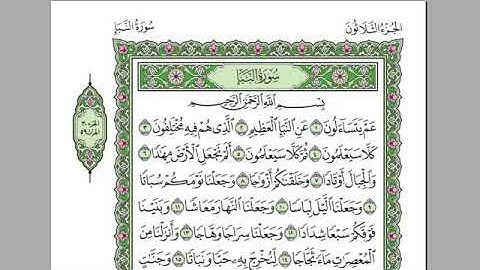 الجزء الثلاثون
سورة النبإ
سُورَةُ النَّبَإِ
بِسْمِ اللَّهِ الرَّحْمَٰنِ الرَّحِيمِ
عَمَّ يَتَسَآءَلُونَ ١ عَنِ ٱلنَّبَإِ ٱلْعَظِيمِ ٢ ٱلَّذِى هُمْ فِيهِ مُخْتَلِفُونَ ٣
كَلَّا سَيَعْلَمُونَ ٤ ثُمَّ كَلَّا سَيَعْلَمُونَ ٥ أَلَمْ نَجْعَلِ ٱلْأَرْضَ مِهَٰدًا ٦
وَٱلْجِبَالَ أَوْتَادًا ٧ وَخَلَقْنَٰكُمْ أَزْوَٰجًا ٨ وَجَعَلْنَا نَوْمَكُمْ سُبَاتًا
٩ وَجَعَلْنَا ٱلَّيْلَ لِبَاسًا ١٠ وَجَعَلْنَا ٱلنَّهَارَ مَعَاشًا ١١ وَبَنَيْنَا
فَوْقَكُمْ سَبْعًا شِدَادًا ١٢ وَجَعَلْنَا سِرَاجًا وَهَّاجًا ١٣ وَأَنزَلْنَا مِنَ
ٱلْمُعْصِرَٰتِ مَآءً ثَجَّاجًا ١٤ لِّنُخْرِجَ بِهِۦ حَبًّا وَنَبَاتًا ١٥ وَجَنَّٰتٍ